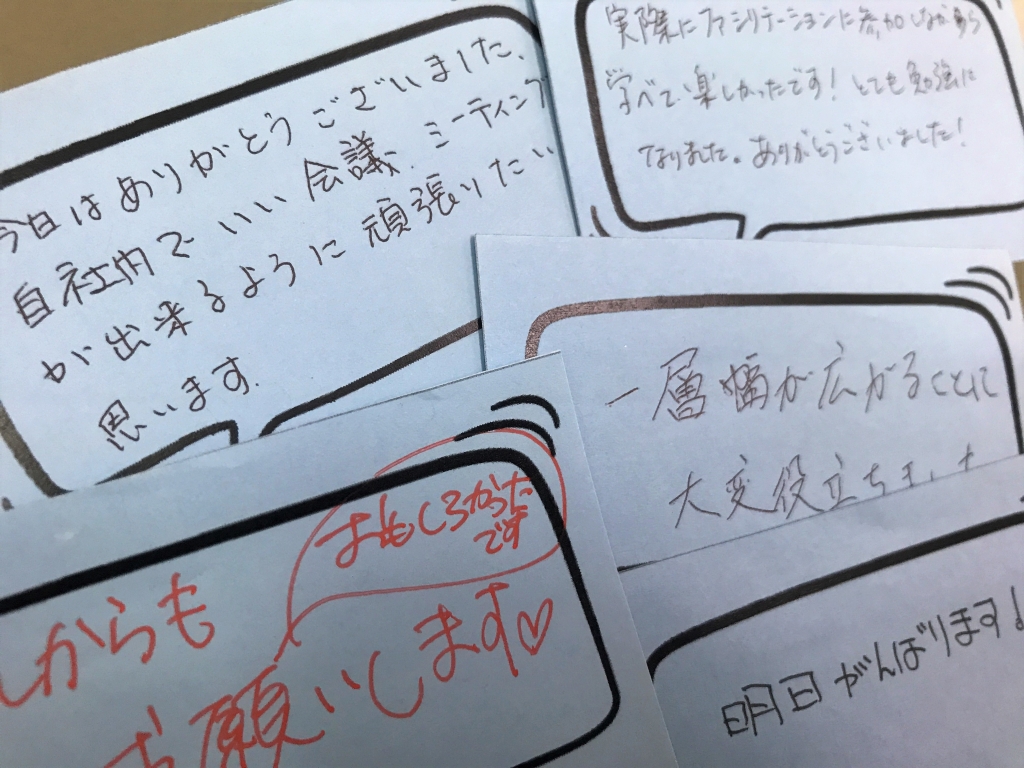 今日はありがとうございました、
自社内でいい会議、ミーティング
が出来るように頑張りたい
思います.
実際にファシリテーションに参加しながら
学べて、楽しかったです!とても勉強に
なりました。ありがとうございました!
一層幅が広がることに
大変役立ちました
おもしろかった
です
からも
お願いします♡
明日がんばります!